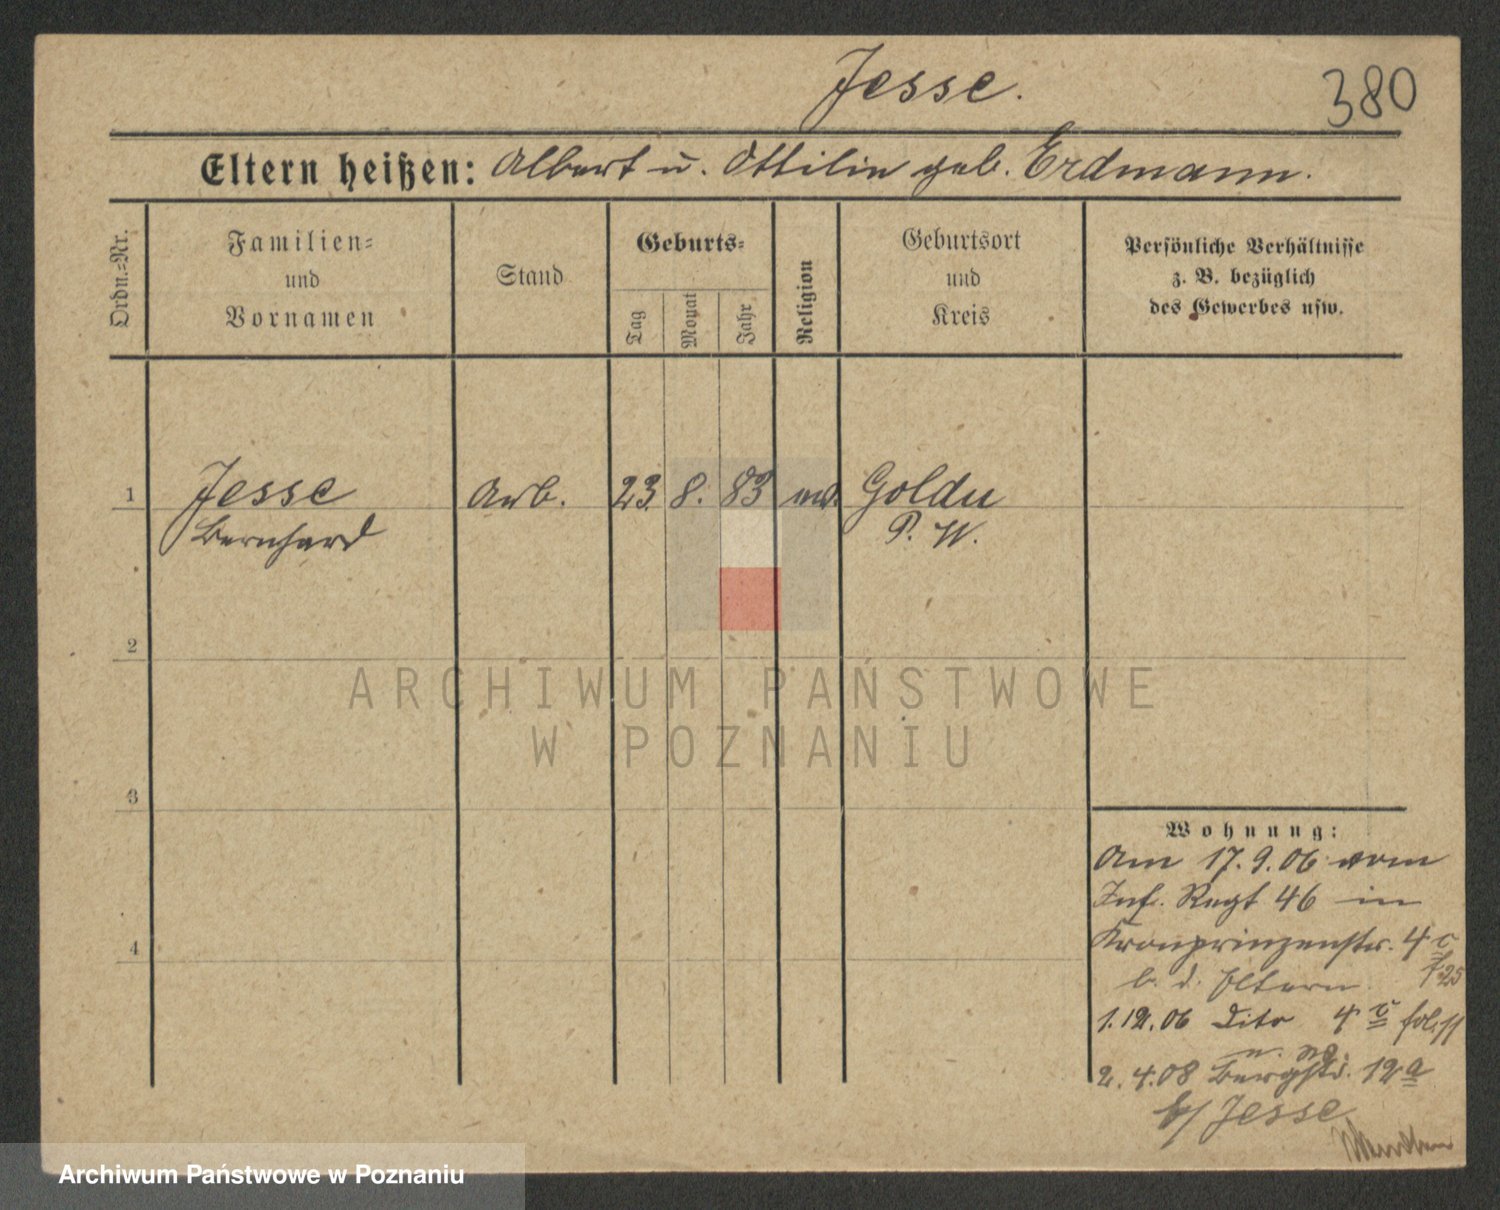 Jesse.
380
Eltern heißen: Albert u. Ottilie geb. Erdmann.
Ordn.=Nr.
Familien=
und
Vornamen
Stand
Geburts=
Tag
Monat
Jahr
Religion
Geburtsort
und
Kreis
Persönliche Verhältnisse
z. B. bezüglich
des Gewerbes usw.
1 Jesse Arb. 23. 8. 83 Goldau
Bernhard P. W.
2
3
4
Wohnung:
Am 17.9.06 vom
Inf. Regt 46 in
Kronprinzenstr. 4 c
b. d. Eltern
1.12.06 Dito 4 c
2.4.08 Bergstr. 12a
b/ Jesse
ARCHIWUM PAŃSTWOWE
W POZNANIU
Archiwum Państwowe w Poznaniu